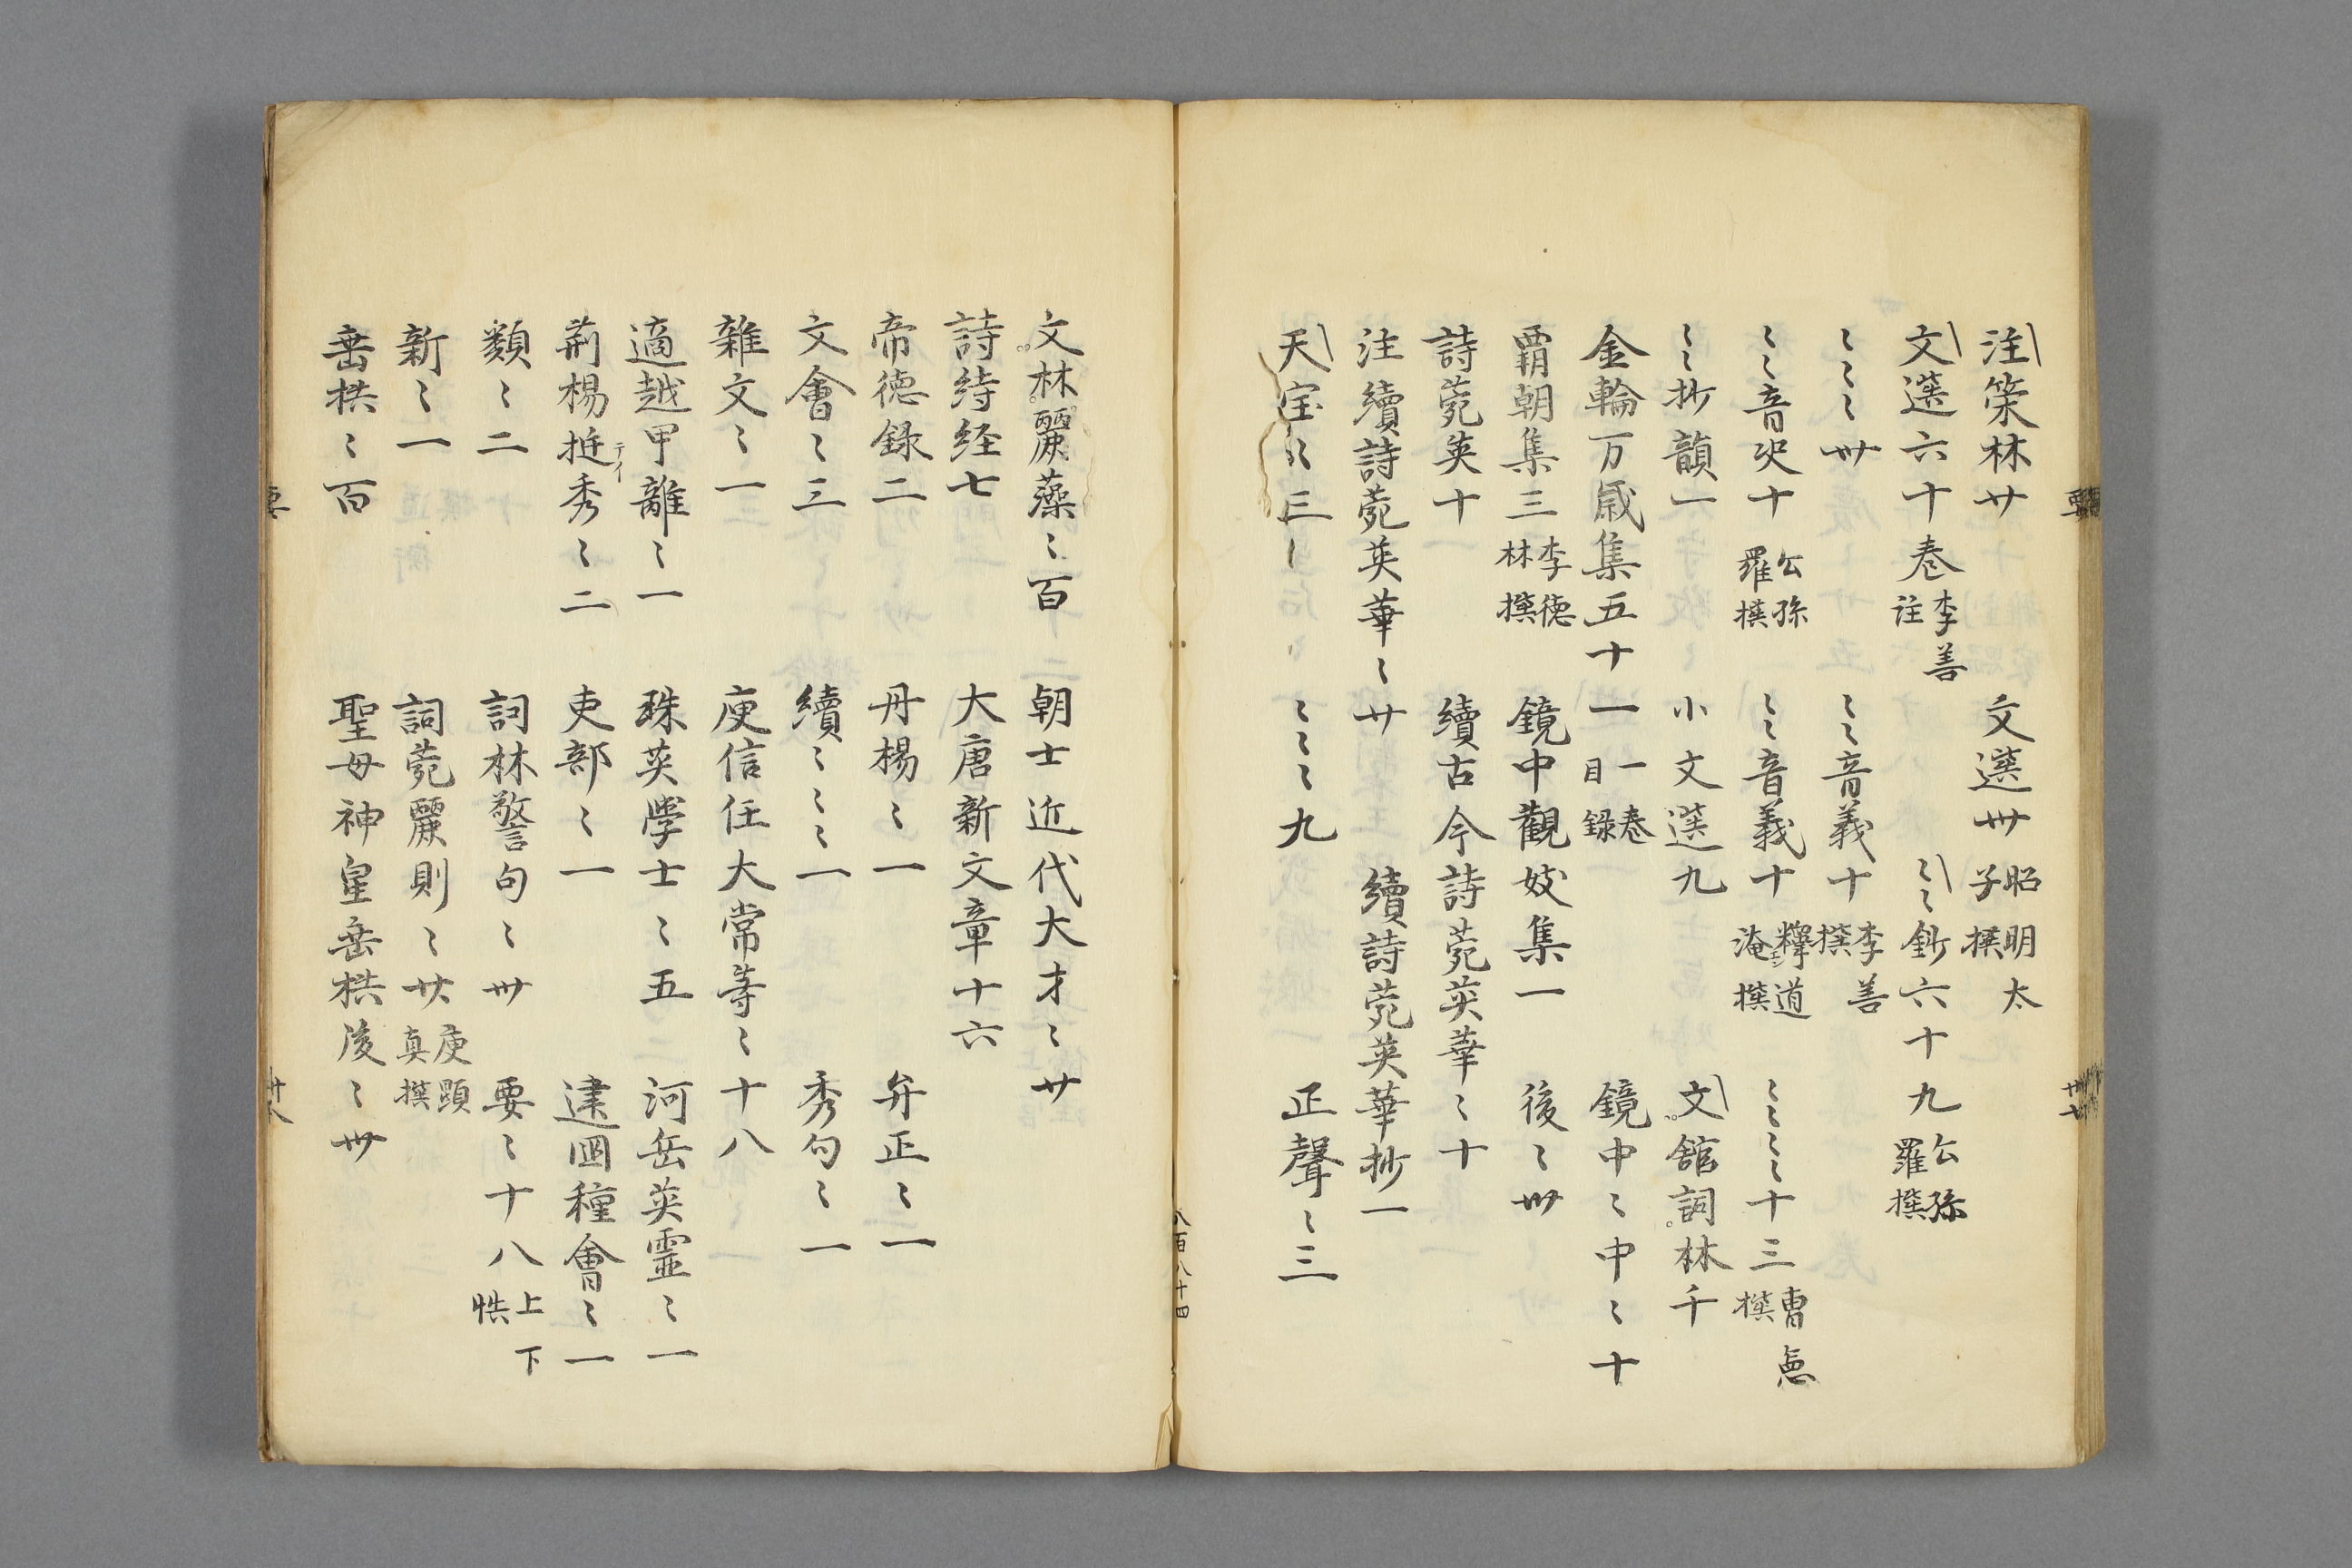 注篥林廿　文選卅昭明太子撰
文選六十巻李善註　〻〻鈔六十九公孫羅撰
〻〻〻卅　〻〻音義十李善撰
〻〻音決十公孫羅撰　〻〻音義十釋道淹撰　〻〻〻〻十三曹憲撰
〻〻抄韻一　小文選九　文舘詞林千
金輪万歳集五十一一巻目録　鏡中〻中〻十
覇朝集三李徳林撰　鏡中觀妓集一　後〻卅
詩菀英十　續古今詩菀英華〻十
注續詩菀英華〻廿　續詩菀英華抄一
天宝〻三〻　〻〻〻九　正聲〻三
八百八十四
文林麗藻〻百　朝士近代大才〻廿
詩緒経七　大唐新文章十六
帝徳録二　丹楊〻一　弁正〻一
文會〻三　續〻〻〻一　秀句〻一
雜文〻一　庾信任大常等〻十八
適越甲離〻一　珠英學士〻五　河岳英靈〻一
荊楊挻テイ秀〻二　吏部〻一　建國種會〻一
類〻二　詞林警句〻卅　要〻十八上下帙
新〻一　詞菀麗則〻廿庾顕真撰
垂拱〻百　聖母神皇垂拱後〻卅